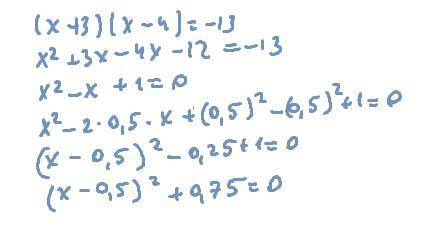 (x+3)(x-4)=-13
x²+3x-4x-12=-13
x²-x+1=0
x²-2·0,5·x+(0,5)²-(0,5)²+1=0
(x-0,5)²-0,25+1=0
(x-0,5)²+0,75=0